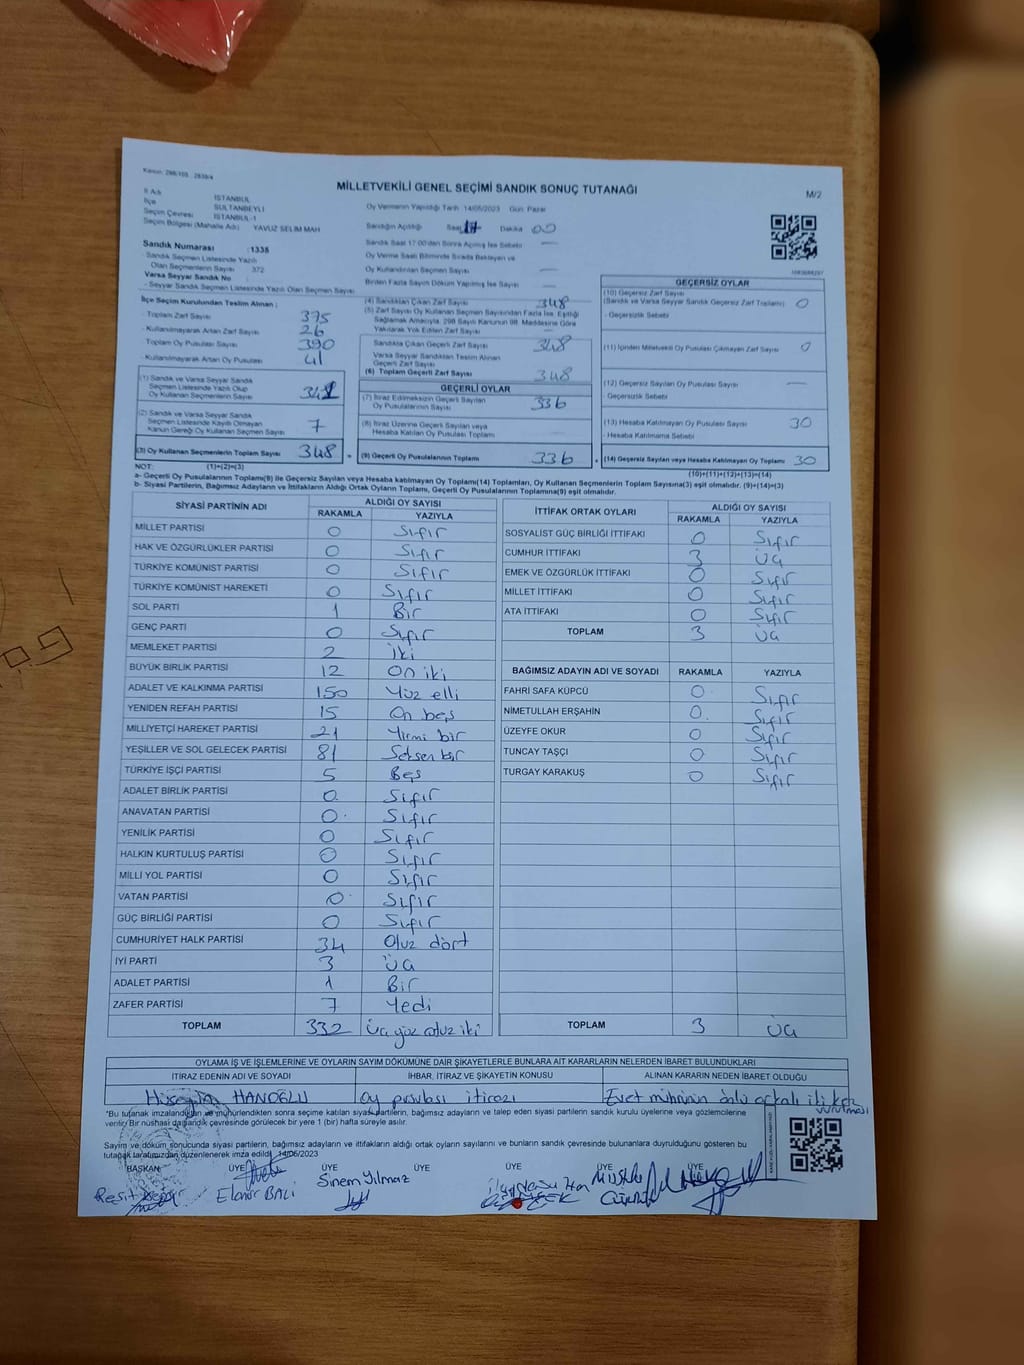 Kanun: 298/105 , 2839/4
MİLLETVEKİLİ GENEL SEÇİMİ SANDIK SONUÇ TUTANAĞI
M/2
İl Adı İSTANBUL
İlçe SULTANBEYLİ
Seçim Çevresi İSTANBUL-1
Seçim Bölgesi (Mahalle Adı) YAVUZ SELİM MAH
Oy Vermenin Yapıldığı Tarih 14/05/2023 Gün: Pazar
Sandığın Açıldığı Saat 17 Dakika 00
Sandık Saat 17:00'den Sonra Açılmış İse Sebebi —
Oy Verme Saati Bitiminde Sırada Bekleyen ve
Oy Kullandırılan Seçmen Sayısı —
Birden Fazla Sayım Dökum Yapılmış İse Sayısı —
Sandık Numarası :1335
- Sandık Seçmen Listesinde Yazılı
Olan Seçmenlerin Sayısı 372
Varsa Seyyar Sandık No
- Seyyar Sandık Seçmen Listesinde Yazılı Olan Seçmen Sayısı
İlçe Seçim Kurulundan Teslim Alınan :
- Toplam Zarf Sayısı 375
- Kullanılmayarak Artan Zarf Sayısı 26
Toplam Oy Pusulası Sayısı 390
- Kullanılmayarak Artan Oy Pusulası 41
(1) Sandık ve Varsa Seyyar Sandık
Seçmen Listesinde Yazılı Olup
Oy Kullanan Seçmenlerin Sayısı 341
(2) Sandık ve Varsa Seyyar Sandık
Seçmen Listesinde Kayıtlı Olmayan
Kanun Gereği Oy Kullanan Seçmen Sayısı 7
(3) Oy Kullanan Seçmenlerin Toplam Sayısı 348
(4) Sandıktan Çıkan Zarf Sayısı 348
(5) Zarf Sayısı Oy Kullanan Seçmen Sayısından Fazla İse, Eşitliği
Sağlamak Amacıyla, 298 Sayılı Kanunun 98. Maddesine Göre
Yakılarak Yok Edilen Zarf Sayısı
Sandıkta Çıkan Geçerli Zarf Sayısı 348
Varsa Seyyar Sandıktan Teslim Alınan
Geçerli Zarf Sayısı
(6) Toplam Geçerli Zarf Sayısı 348
GEÇERLİ OYLAR
(7) İtiraz Edilmeksizin Geçerli Sayılan
Oy Pusulalarının Sayısı 336
(8) İtiraz Üzerine Geçerli Sayılan veya
Hesaba Katılan Oy Pusulası Toplamı
= (9) Geçerli Oy Pusulalarının Toplamı 336
GEÇERSİZ OYLAR
(10) Geçersiz Zarf Sayısı
(Sandık ve Varsa Seyyar Sandık Geçersiz Zarf Toplamı) 0
- Geçersizlik Sebebi
(11) İçinden Milletvekili Oy Pusulası Çıkmayan Zarf Sayısı 0
(12) Geçersiz Sayılan Oy Pusulası Sayısı —
- Geçersizlik Sebebi
(13) Hesaba Katılmayan Oy Pusulası Sayısı 30
- Hesaba Katılmama Sebebi
+ (14) Geçersiz Sayılan veya Hesaba Katılmayan Oy Toplamı 30
NOT: (1)+(2)=(3) (10)+(11)+(12)+(13)=(14)
a- Geçerli Oy Pusulaları Toplamı(9) ile Geçersiz Sayılan veya Hesaba Katılmayan Oy Toplamı(14) Toplamları, Oy Kullanan Seçmenlerin Toplam Sayısına(3) eşit olmalıdır. (9)+(14)=(3)
b- Siyasi Partilerin, Bağımsız Adayların ve İttifakların Aldığı Ortak Oyların Toplamı, Geçerli Oy Pusulalarının Toplamına(9) eşit olmalıdır.
SİYASİ PARTİNİN ADI ALDIĞI OY SAYISI
RAKAMLA YAZIYLA
MİLLET PARTİSİ 0 Sıfır
HAK VE ÖZGÜRLÜKLER PARTİSİ 0 Sıfır
TÜRKİYE KOMÜNİST PARTİSİ 0 Sıfır
TÜRKİYE KOMÜNİST HAREKETİ 0 Sıfır
SOL PARTİ 1 Bir
GENÇ PARTİ 0 Sıfır
MEMLEKET PARTİSİ 2 İki
BÜYÜK BİRLİK PARTİSİ 12 On iki
ADALET VE KALKINMA PARTİSİ 150 Yüz elli
YENİDEN REFAH PARTİSİ 15 On beş
MİLLİYETÇİ HAREKET PARTİSİ 21 Yirmi bir
YEŞİLLER VE SOL GELECEK PARTİSİ 81 Seksen bir
TÜRKİYE İŞÇİ PARTİSİ 5 Beş
ADALET BİRLİK PARTİSİ 0 Sıfır
ANAVATAN PARTİSİ 0 Sıfır
YENİLİK PARTİSİ 0 Sıfır
HALKIN KURTULUŞ PARTİSİ 0 Sıfır
MİLLİ YOL PARTİSİ 0 Sıfır
VATAN PARTİSİ 0 Sıfır
GÜÇ BİRLİĞİ PARTİSİ 0 Sıfır
CUMHURİYET HALK PARTİSİ 34 Otuz dört
İYİ PARTİ 3 Üç
ADALET PARTİSİ 1 Bir
ZAFER PARTİSİ 7 Yedi
TOPLAM 332 Üç yüz otuz iki
İTTİFAK ORTAK OYLARI ALDIĞI OY SAYISI
RAKAMLA YAZIYLA
SOSYALİST GÜÇ BİRLİĞİ İTTİFAKI 0 Sıfır
CUMHUR İTTİFAKI 3 Üç
EMEK VE ÖZGÜRLÜK İTTİFAKI 0 Sıfır
MİLLET İTTİFAKI 0 Sıfır
ATA İTTİFAKI 0 Sıfır
TOPLAM 3 Üç
BAĞIMSIZ ADAYIN ADI VE SOYADI RAKAMLA YAZIYLA
FAHRİ SAFA KÜPCÜ 0 Sıfır
NİMETULLAH ERŞAHİN 0 Sıfır
ÜZEYFE OKUR 0 Sıfır
TUNCAY TAŞÇI 0 Sıfır
TURGAY KARAKUŞ 0 Sıfır
TOPLAM 3 Üç
OYLAMA İŞ VE İŞLEMLERİNE VE OYLARIN SAYIM DÖKÜMÜNE DAİR ŞİKAYETLERLE BUNLARA AİT KARARLARIN NELERDEN İBARET BULUNDUKLARI
İTİRAZ EDENİN ADI VE SOYADI İHBAR, İTİRAZ VE ŞİKAYETİN KONUSU ALINAN KARARIN NEDEN İBARET OLDUĞU
Hüseyin HANOĞLU Oy pusulası itirazı Evet mührünün önlü arkalı iki kez vurulması
*Bu tutanak imzalandıktan ve mühürlendikten sonra seçime katılan siyasi partilerin, bağımsız adayların ve talep eden siyasi partilerin sandık kurulu üyelerine veya gözlemcilerine
verilir. Bir nüshası da sandık çevresinde görülecek bir yere 1 (bir) hafta süreyle asılır.
Sayım ve döküm sonucunda siyasi partilerin, bağımsız adayların ve ittifakların aldığı ortak oyların sayılarını ve bunların sandık çevresinde bulunanlara duyrulduğunu gösteren bu
tutanak tarafımızdan düzenlenerek imza edildi. 14/05/2023
BAŞKAN ÜYE ÜYE ÜYE ÜYE ÜYE ÜYE
Reşit
Elanur BALİ
Sinem Yılmaz